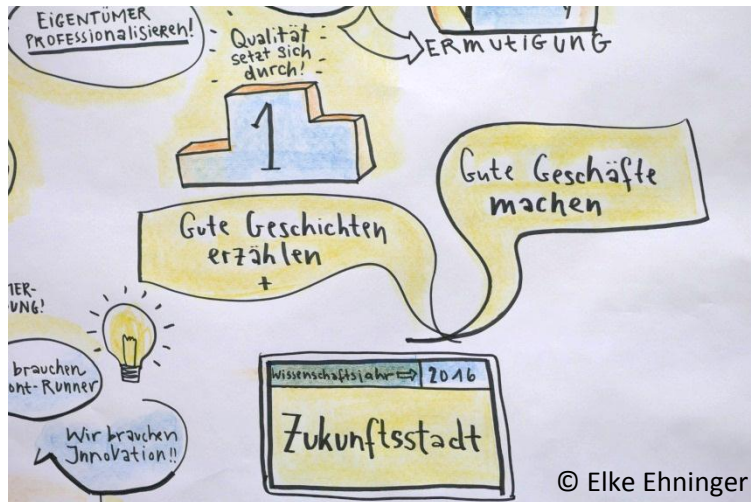 EIGENTÜMER
PROFESSIONALISIEREN!
Qualität
setzt sich
durch!
ERMUTIGUNG
1
Gute Geschäfte
machen
Gute Geschichten
erzählen
+
brauchen
Wir brauchen
Innovation!!
Wissenschaftsjahr 2016
Zukunftsstadt
© Elke Ehninger